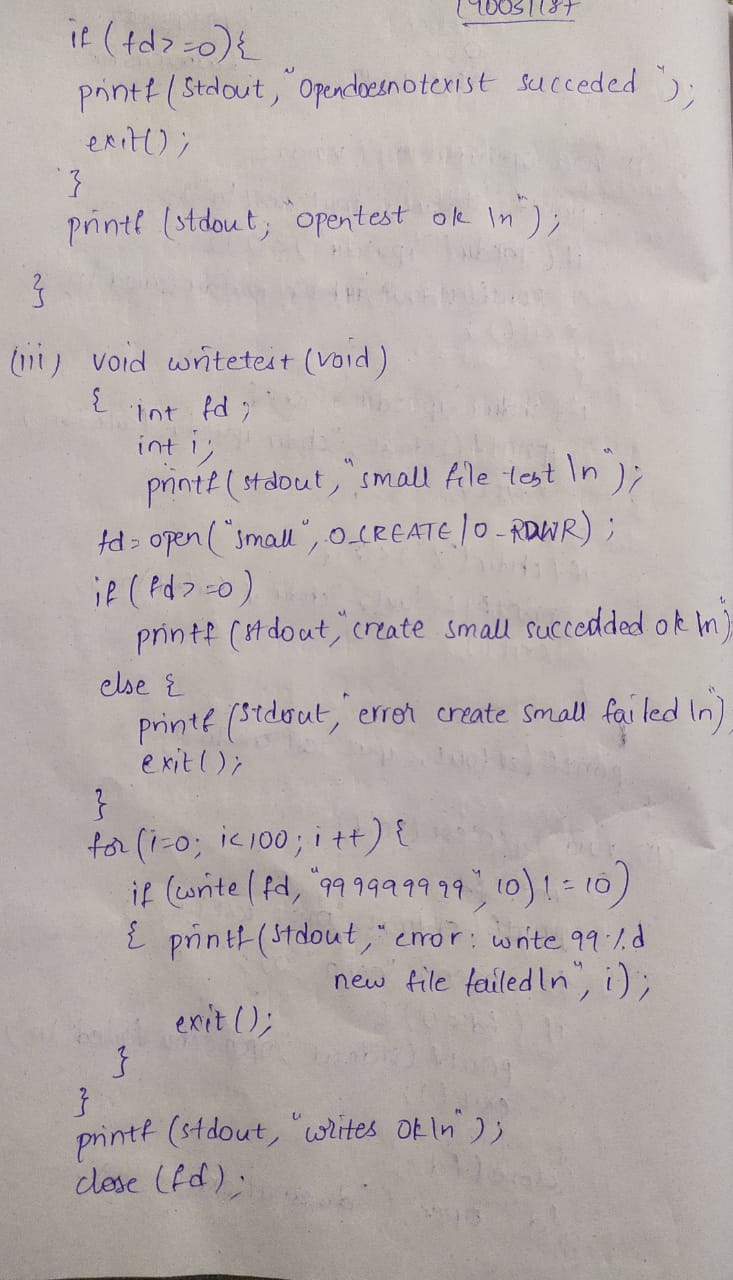 190031187
if (fd>=0){
printf (stdout, "Opendoesnotexist succeded ");
exit();
}
printf (stdout, "opentest ok \n");
}
(iii) void writetest (void)
{ int fd;
int i;
printf (stdout, "small file test \n");
fd = open ("small", O_CREATE | O-RDWR);
if (fd>=0)
printf (stdout, "create small succedded ok \n")
else {
printf (stdout, "error create small failed \n")
exit();
}
for (i=0; i<100; i++) {
if (write (fd, "999999999", 10) != 10)
{ printf (stdout, "error: write 99 %d
new file failed \n", i);
exit ();
}
}
printf (stdout, "writes ok \n");
close (fd);